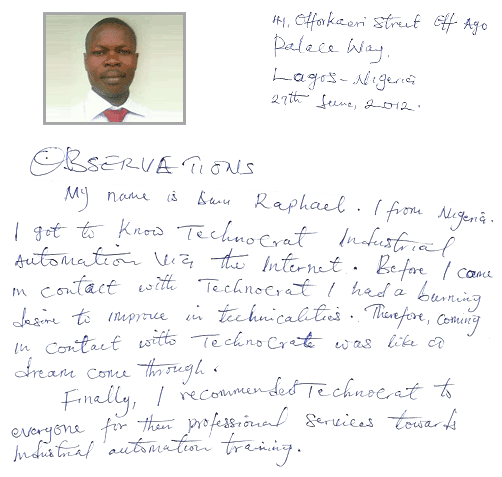 Street Off Ago
Palace Way,
Lagos - Nigeria
27th June, 2012.
OBSERVATIONS
My name is Raphael. I from Nigeria.
I got to know Technocrat Industrial
Automation via the Internet. Before I came
in contact with Technocrat I had a burning
desire to improve in technicalities. Therefore, coming
in contact with Technocrat was like a
dream come through.
Finally, I recommended Technocrat to
everyone for their professional services towards
Industrial automation training.